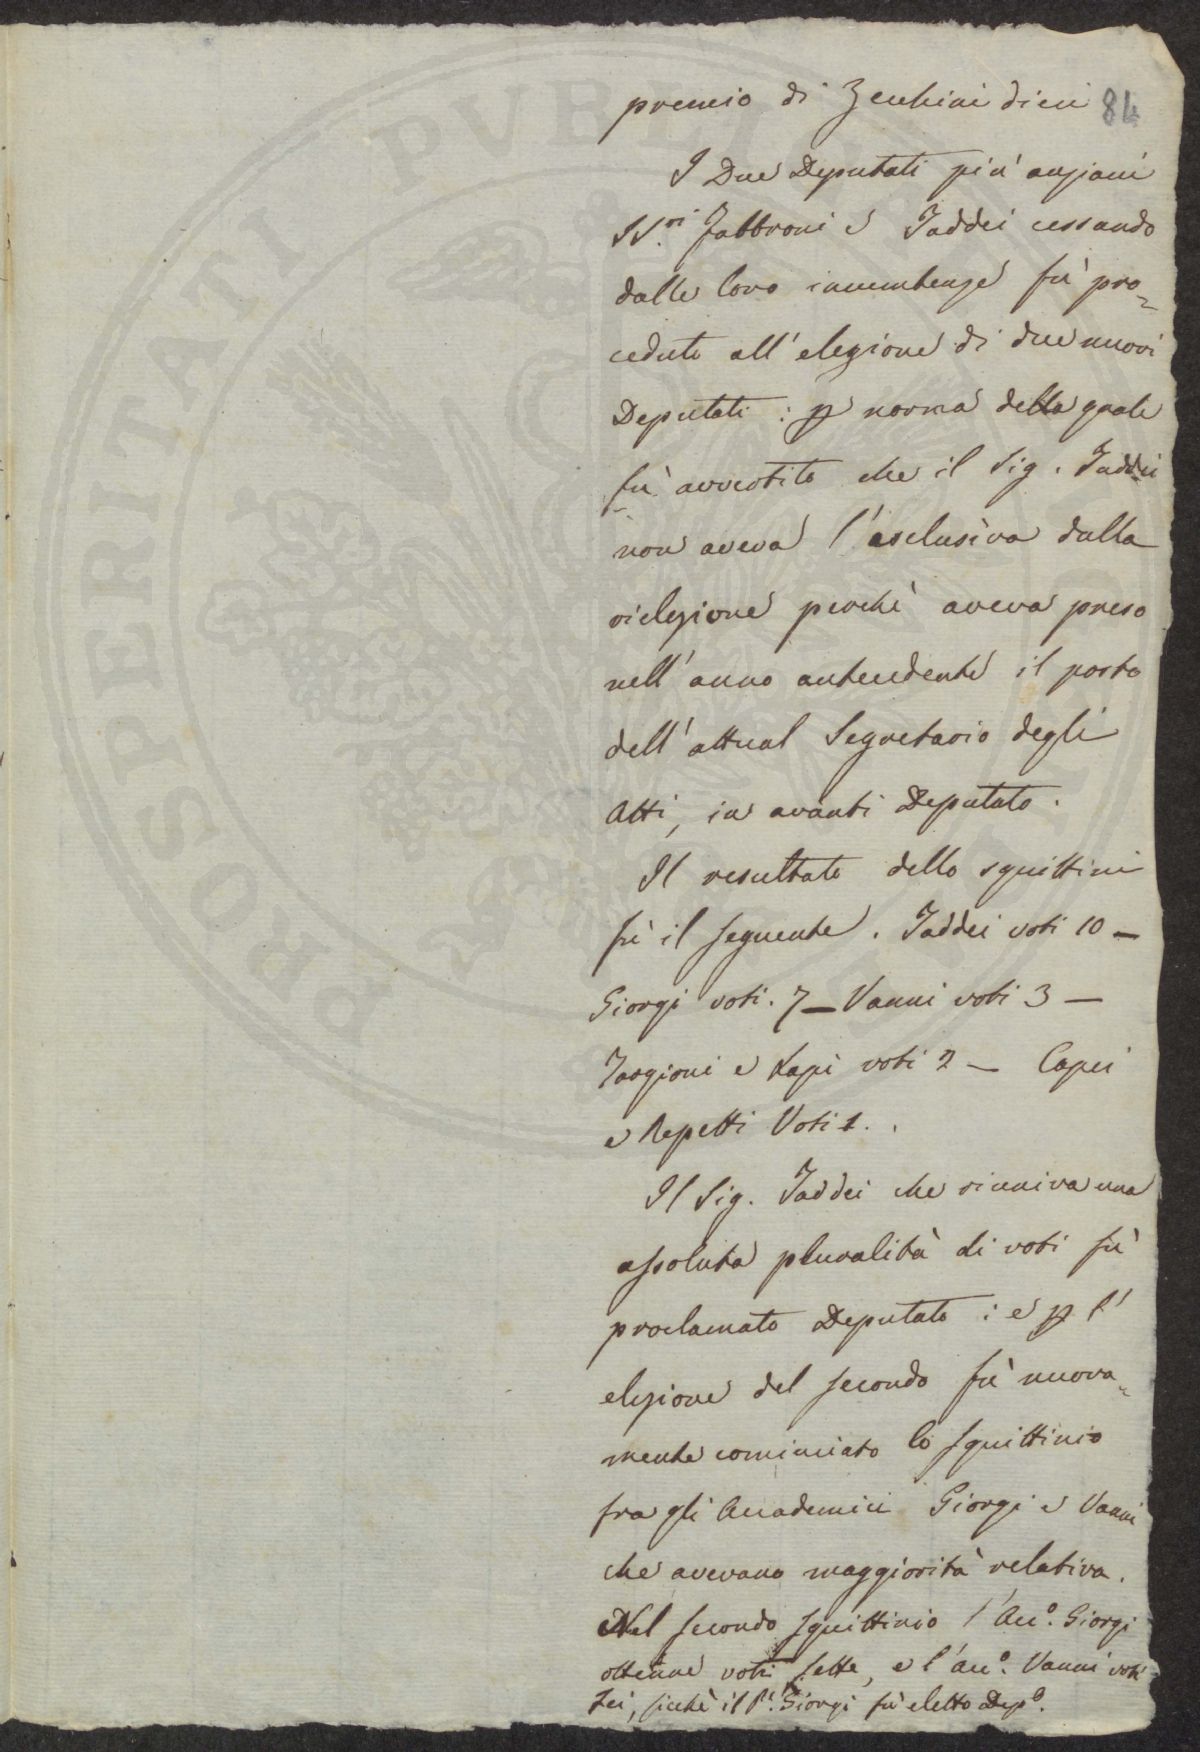 premio di Zecchini dieci 84
I Due Deputati più anziani
SS.ri Fabbroni e Taddei cessando
dalle loro incumbenze fù pro=
ceduto all'elezione di due nuovi
Deputati : p norma della quale
fù avvertito che il Sig. Taddei
non aveva l'esclusiva dalla
rielezione perchè aveva preso
nell'anno antecedente il posto
dell'attual Segretario degli
Atti, in avanti Deputato.
Il resultato dello squittini
fù il seguente. Taddei voti 10 —
Giorgi voti. 7 — Vanni voti 3 —
Targioni e Lapi voti 2 — Capei
e Repetti Voti 1.
Il Sig. Taddei che riuniva una
assoluta pluralità di voti fù
proclamato Deputato : e p l'
elezione del secondo fù nuova=
mente cominciato lo squittinio
fra gli Accademici Giorgi e Vanni
che avevano maggiorità relativa.
Nel secondo squittinio l'Acc.o Giorgi
ottenne voti sette, e l'acc.o Vanni voti
sei, sicchè il P.e Giorgi fù eletto Dep.o
PROSPERITATI PVBLICAE